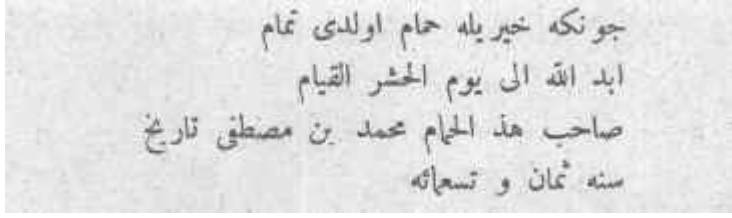 جونكه خيريله حمام اولدى تمام
ابد الله الى يوم الحشر القيام
صاحب هذ الحمام محمد بن مصطفى تاريخ
سنه ثمان و تسعمائه